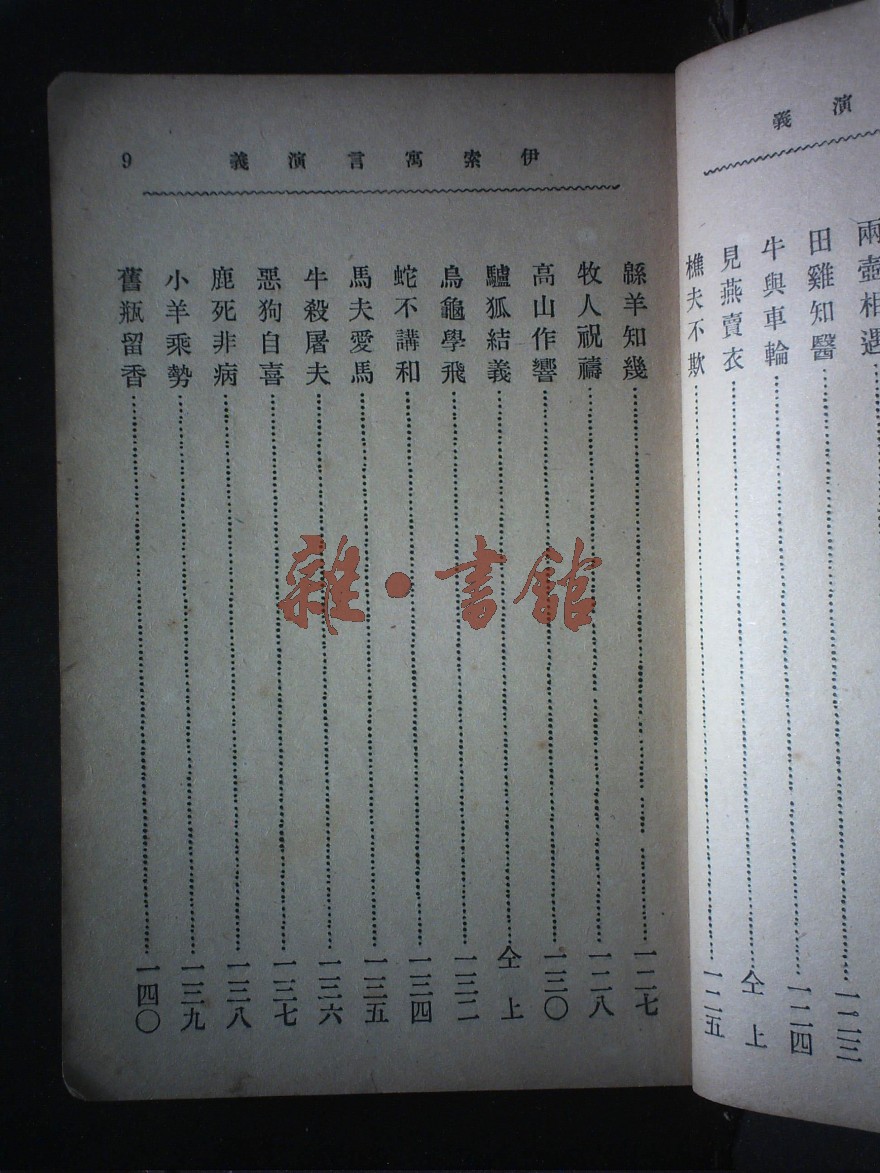 演義
兩壺相遇 一二三
田雞知醫 一二四
牛與車輪 仝上
見燕賣衣
樵夫不欺 一二五
伊索寓言演義 9
緜羊知幾 一二七
牧人祝禱 一二八
高山作響 一三〇
驢狐結義 仝上
烏龜學飛 一三二
蛇不講和 一三四
馬夫愛馬 一三五
牛殺屠夫 一三六
惡狗自喜 一三七
鹿死非病 一三八
小羊乘勢 一三九
舊瓶留香 一四〇
雜·書館